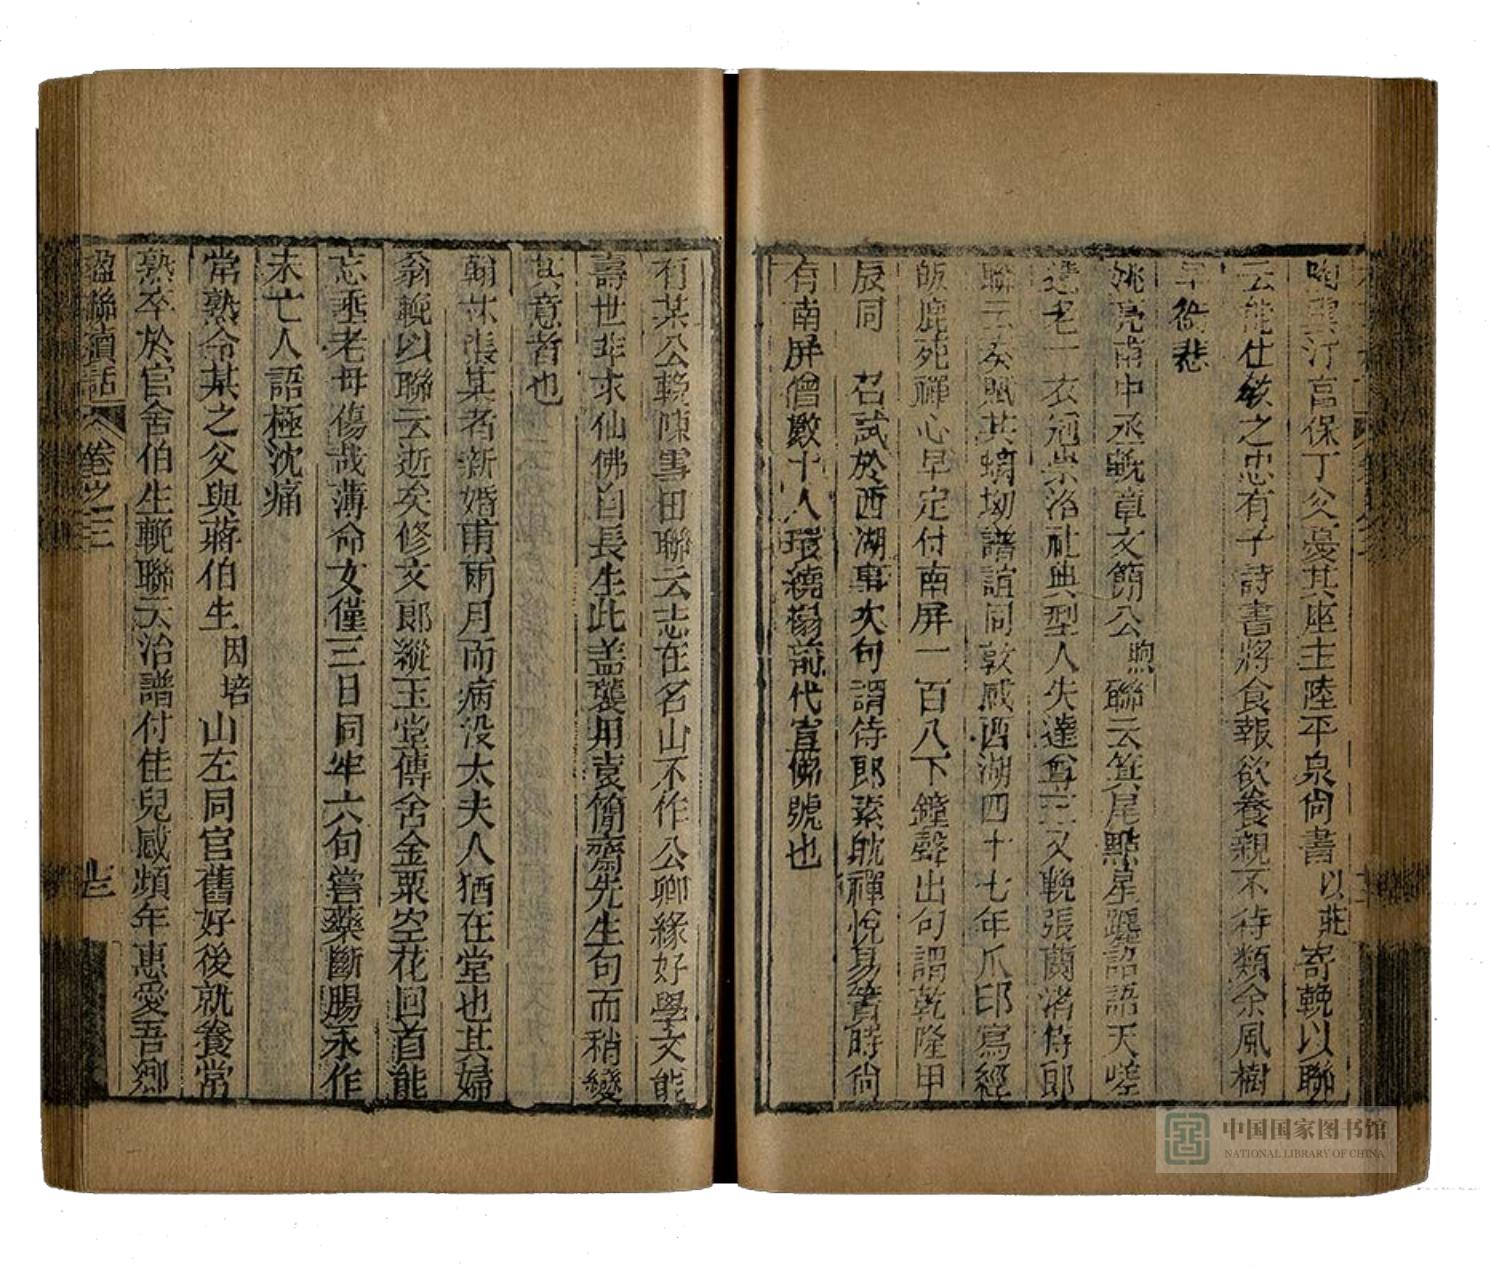 陶雲汀宮保丁父憂其座主陸平泉尚書以莊寄輓以聯
云能仕教之忠有子詩書將食報欲養親不待類余風樹
早銜悲
姚亮甫中丞輓章文簡公煦聯云箕尾黯星躔諮語天嗟
遺老一衣冠崇洛社典型人失達尊三又輓張蘭渚侍郎
聯云奏賦其螭坳譜誼同敦感西湖四十七年爪印寫經
皈鹿苑禪心早定付南屏一百八下鐘聲出句謂乾隆甲
辰同 召試於西湖事次句謂侍郎素耽禪悅易簀時尚
有南屏僧數十人環繞榻前代宣佛號也
有某公輓陳雪田聯云志在名山不作公卿緣好學文能
壽世非求仙佛自長生此盖襲用袁簡齋先生句而稍變
其意者也
翰林張某者新婚甫兩月而病没太夫人猶在堂也其婦
翁輓以聯云逝矣修文郎縱玉堂傳舍金粟空花回首能
忘垂老母傷哉薄命女僅三日同牢六旬嘗藥斷腸永作
未亡人語極沈痛
常熟令某之父與蔣伯生因培山左同官舊好後就養常
熟卒於官舍伯生輓聯云治譜付佳兒感頻年惠愛吾鄉
楹聯續話 卷之三
中国国家图书馆
NATIONAL LIBRARY OF CHINA